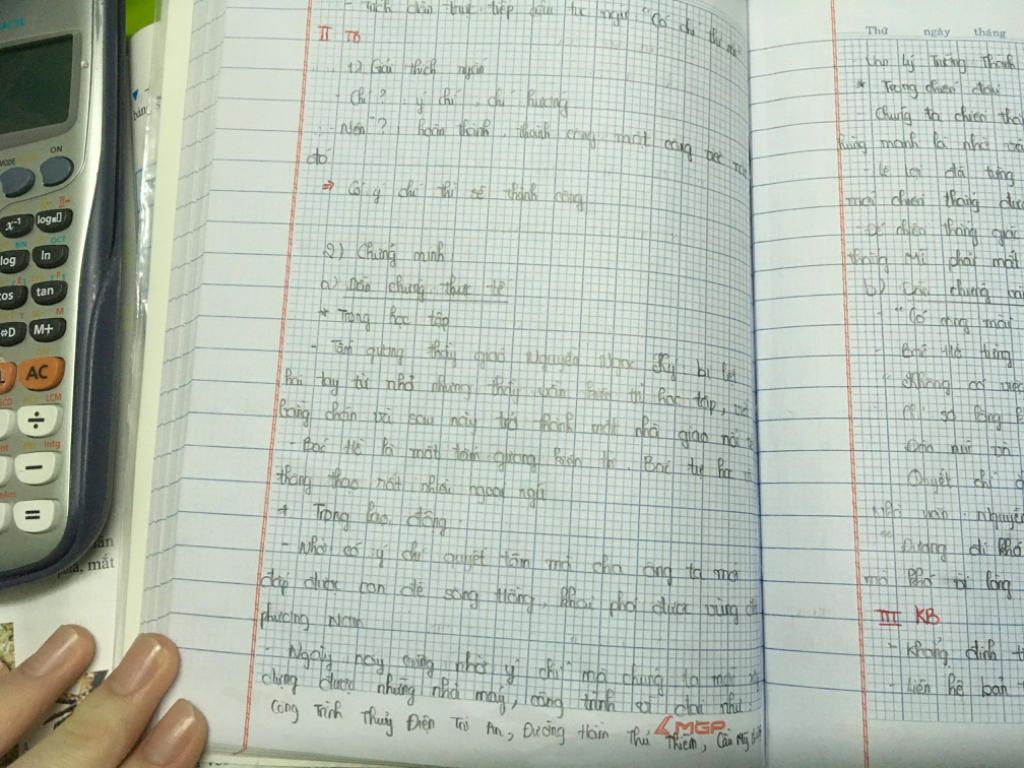 - Trích dẫn trực tiếp câu tục ngữ "Có chí thì nên
II TB
1) Giải thích nghĩa
- Chí? ý chí, chí hướng
- Nên? hoàn thành, thành công một công việc nào
đó
⇒ Có ý chí thì sẽ thành công
2) Chứng minh
a) Dẫn chứng thực tế
* Trong học tập
- Tấm gương thầy giáo Nguyễn Ngọc Ký bị liệt
hai tay từ nhỏ nhưng thầy vẫn kiên trì học tập, viết
bằng chân và sau này trở thành một nhà giáo nổi
- Bác Hồ là một tấm gương kiên trì. Bác tự học
thông thạo rất nhiều ngoại ngữ
* Trong lao động
- Nhờ có ý chí quyết tâm mà cha ông ta mới
đắp được con đê sông Hồng, khai phá được vùng
phương Nam
- Ngày nay cũng nhờ ý chí mà chúng ta mới
dựng được những nhà máy, công trình vĩ đại như
Công Trình Thuỷ Điện Trị An, Đường Hầm Thủ Thiêm, Cầu Mỹ
MGP
Thứ ngày tháng
* Trong chiến đấu
- Chúng ta chiến thắng
hùng mạnh là nhờ
- Lê Lợi đã từng
mới chiến thắng được
- Để chiến thắng giặc
b) Dẫn chứng
- "Có công mài
- Bác Hồ từng
"Không có việc
Chỉ sợ lòng
Đào núi và
Quyết chí
Nhà văn Nguyễn
"Đường đi khó
mà khó vì lòng
III KB
- Khẳng định
- Liên hệ bản
ON
MODE
x⁻¹
log
ln
cos
tan
M+
AC
÷
−
=
mắt